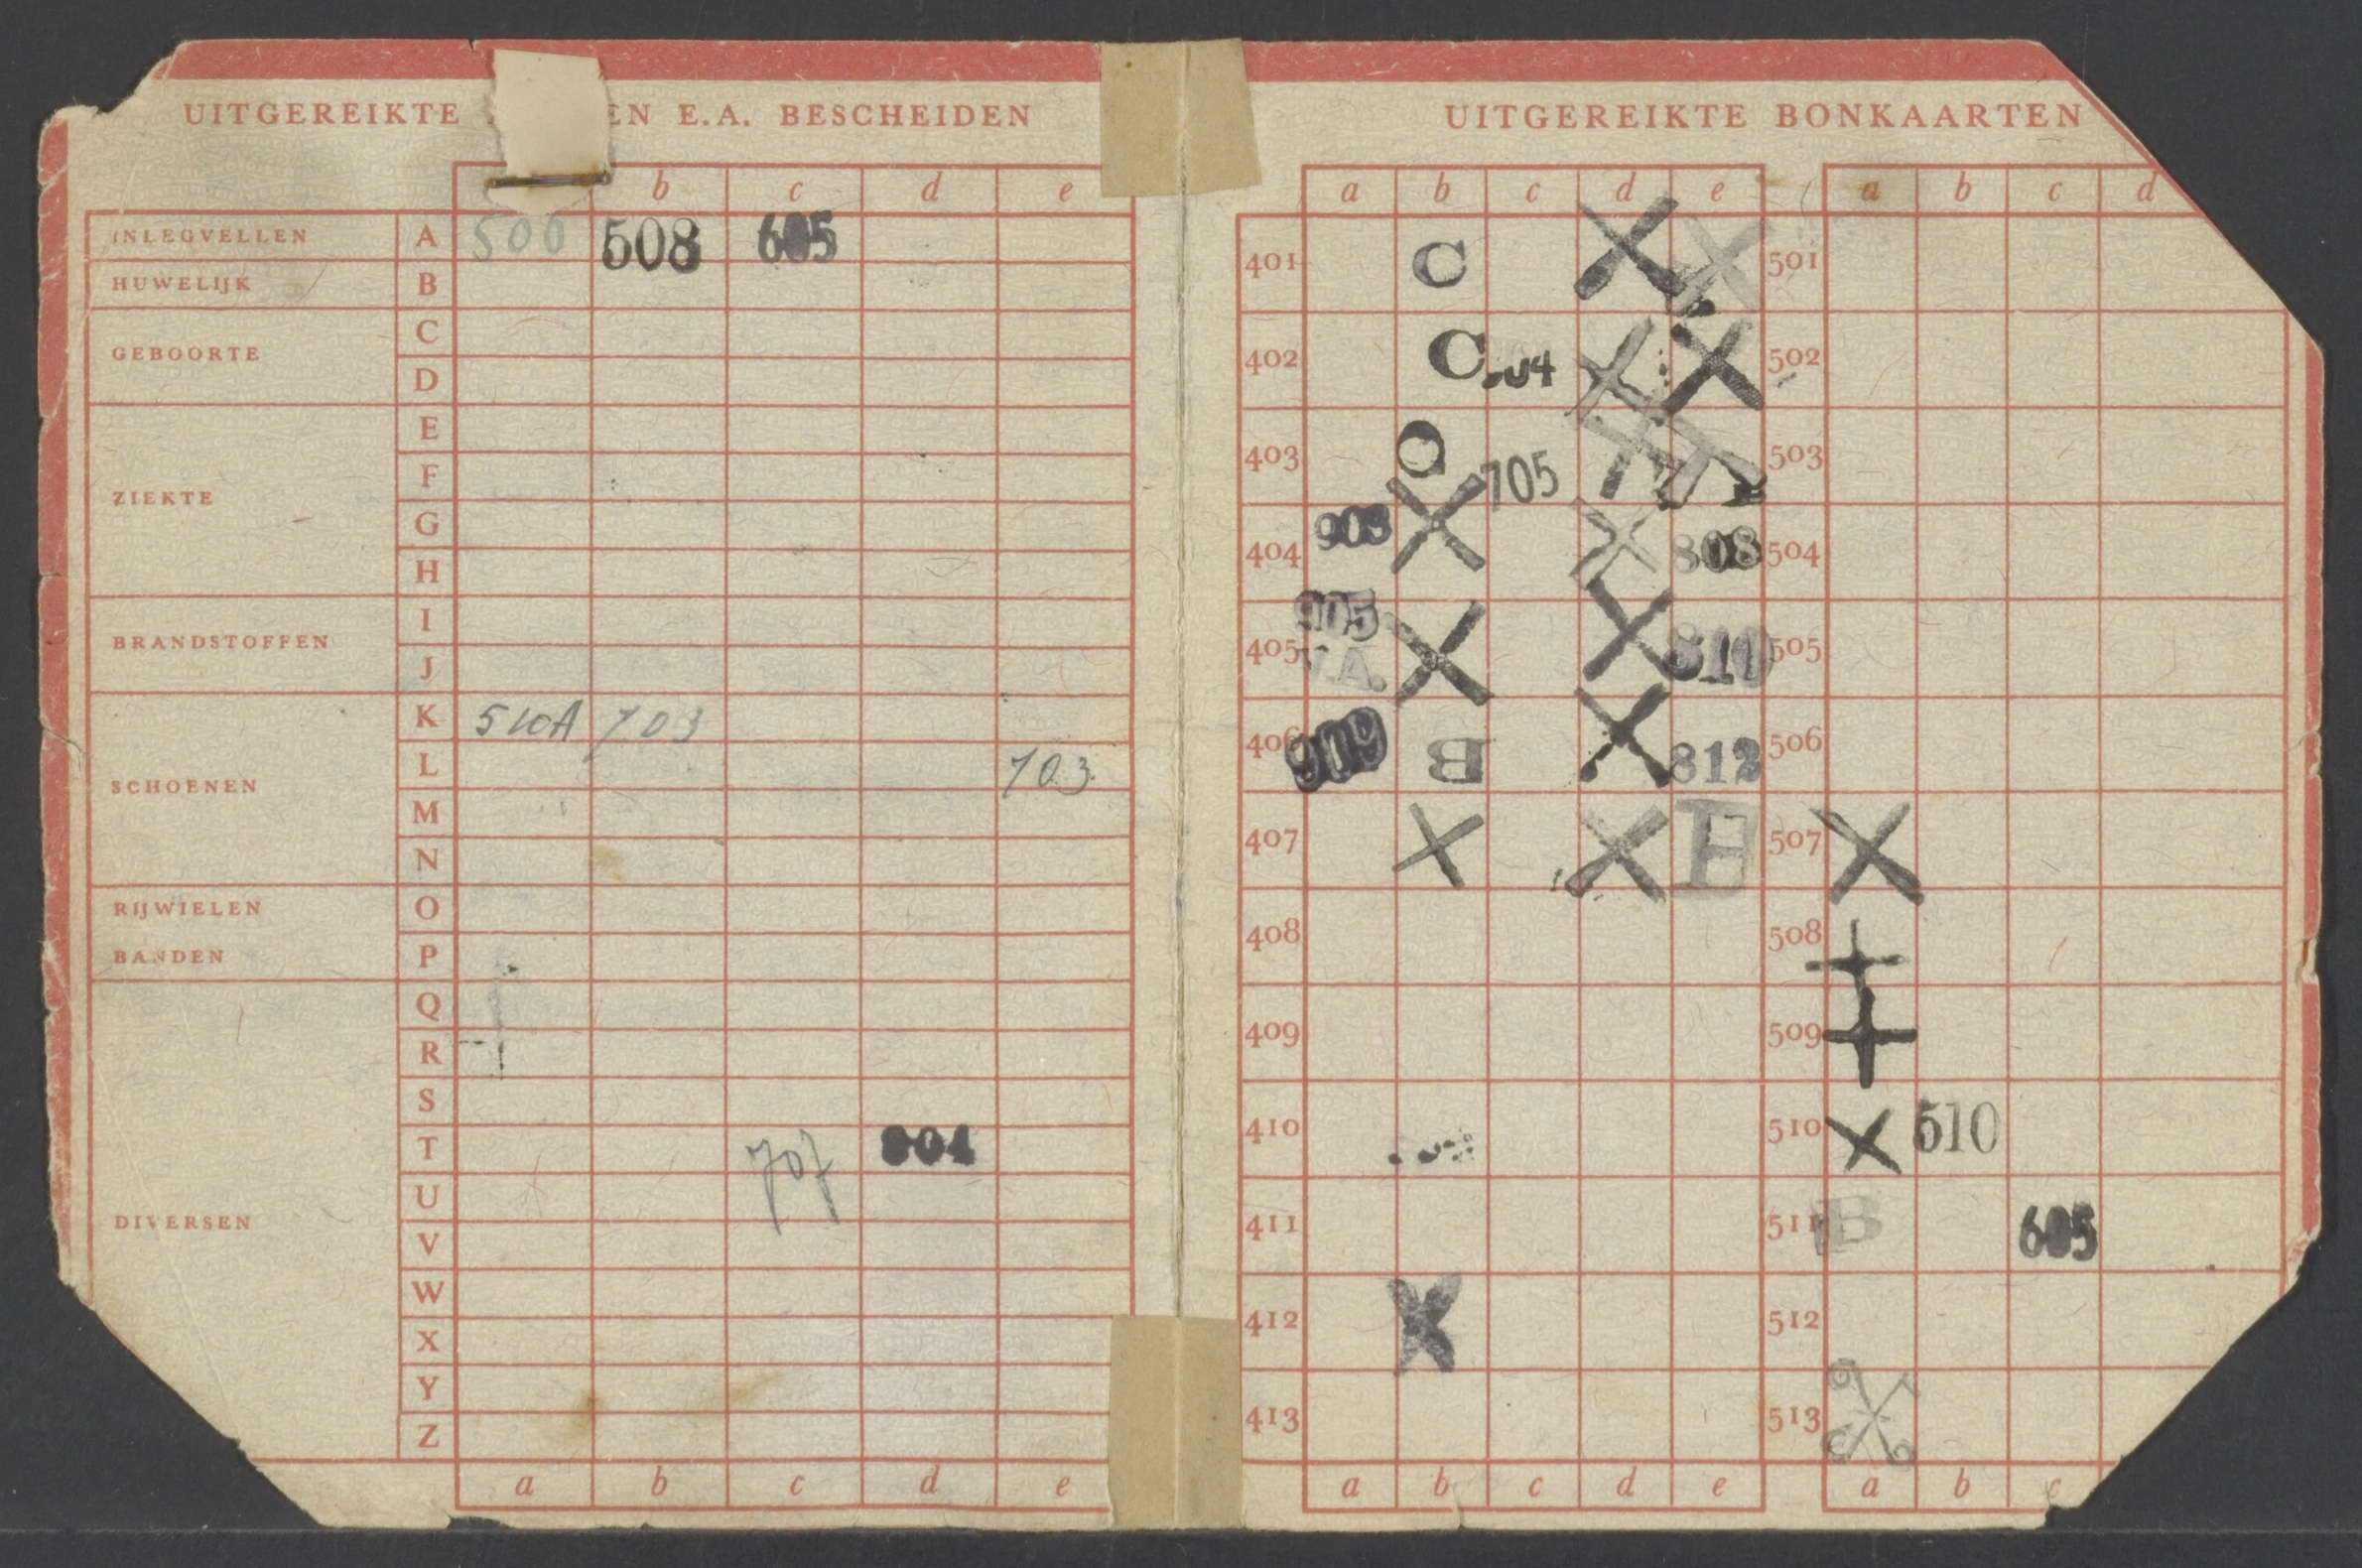 UITGEREIKTE EN E.A. BESCHEIDEN
b c d e
INLEGVELLEN A 500 508 605
HUWELIJK B
GEBOORTE C
D
E
ZIEKTE F
G
H
BRANDSTOFFEN I
J
K 510A 703
SCHOENEN L 703
M
N
RIJWIELEN O
BANDEN P
Q
R
S
T 707 804
DIVERSEN U
V
W
X
Y
Z
a b c d e
UITGEREIKTE BONKAARTEN
a b c d e a b c d
401 C X X 501
402 C X X 502
403 705 503
404 903 X X 808 504
405 905 V.A. X X 810 505
406 909 B X 812 506
407 X X 507 X
408 508
409 509
410 510 X 510
411 511 B 605
412 X 512
413 513
a b c d e a b c